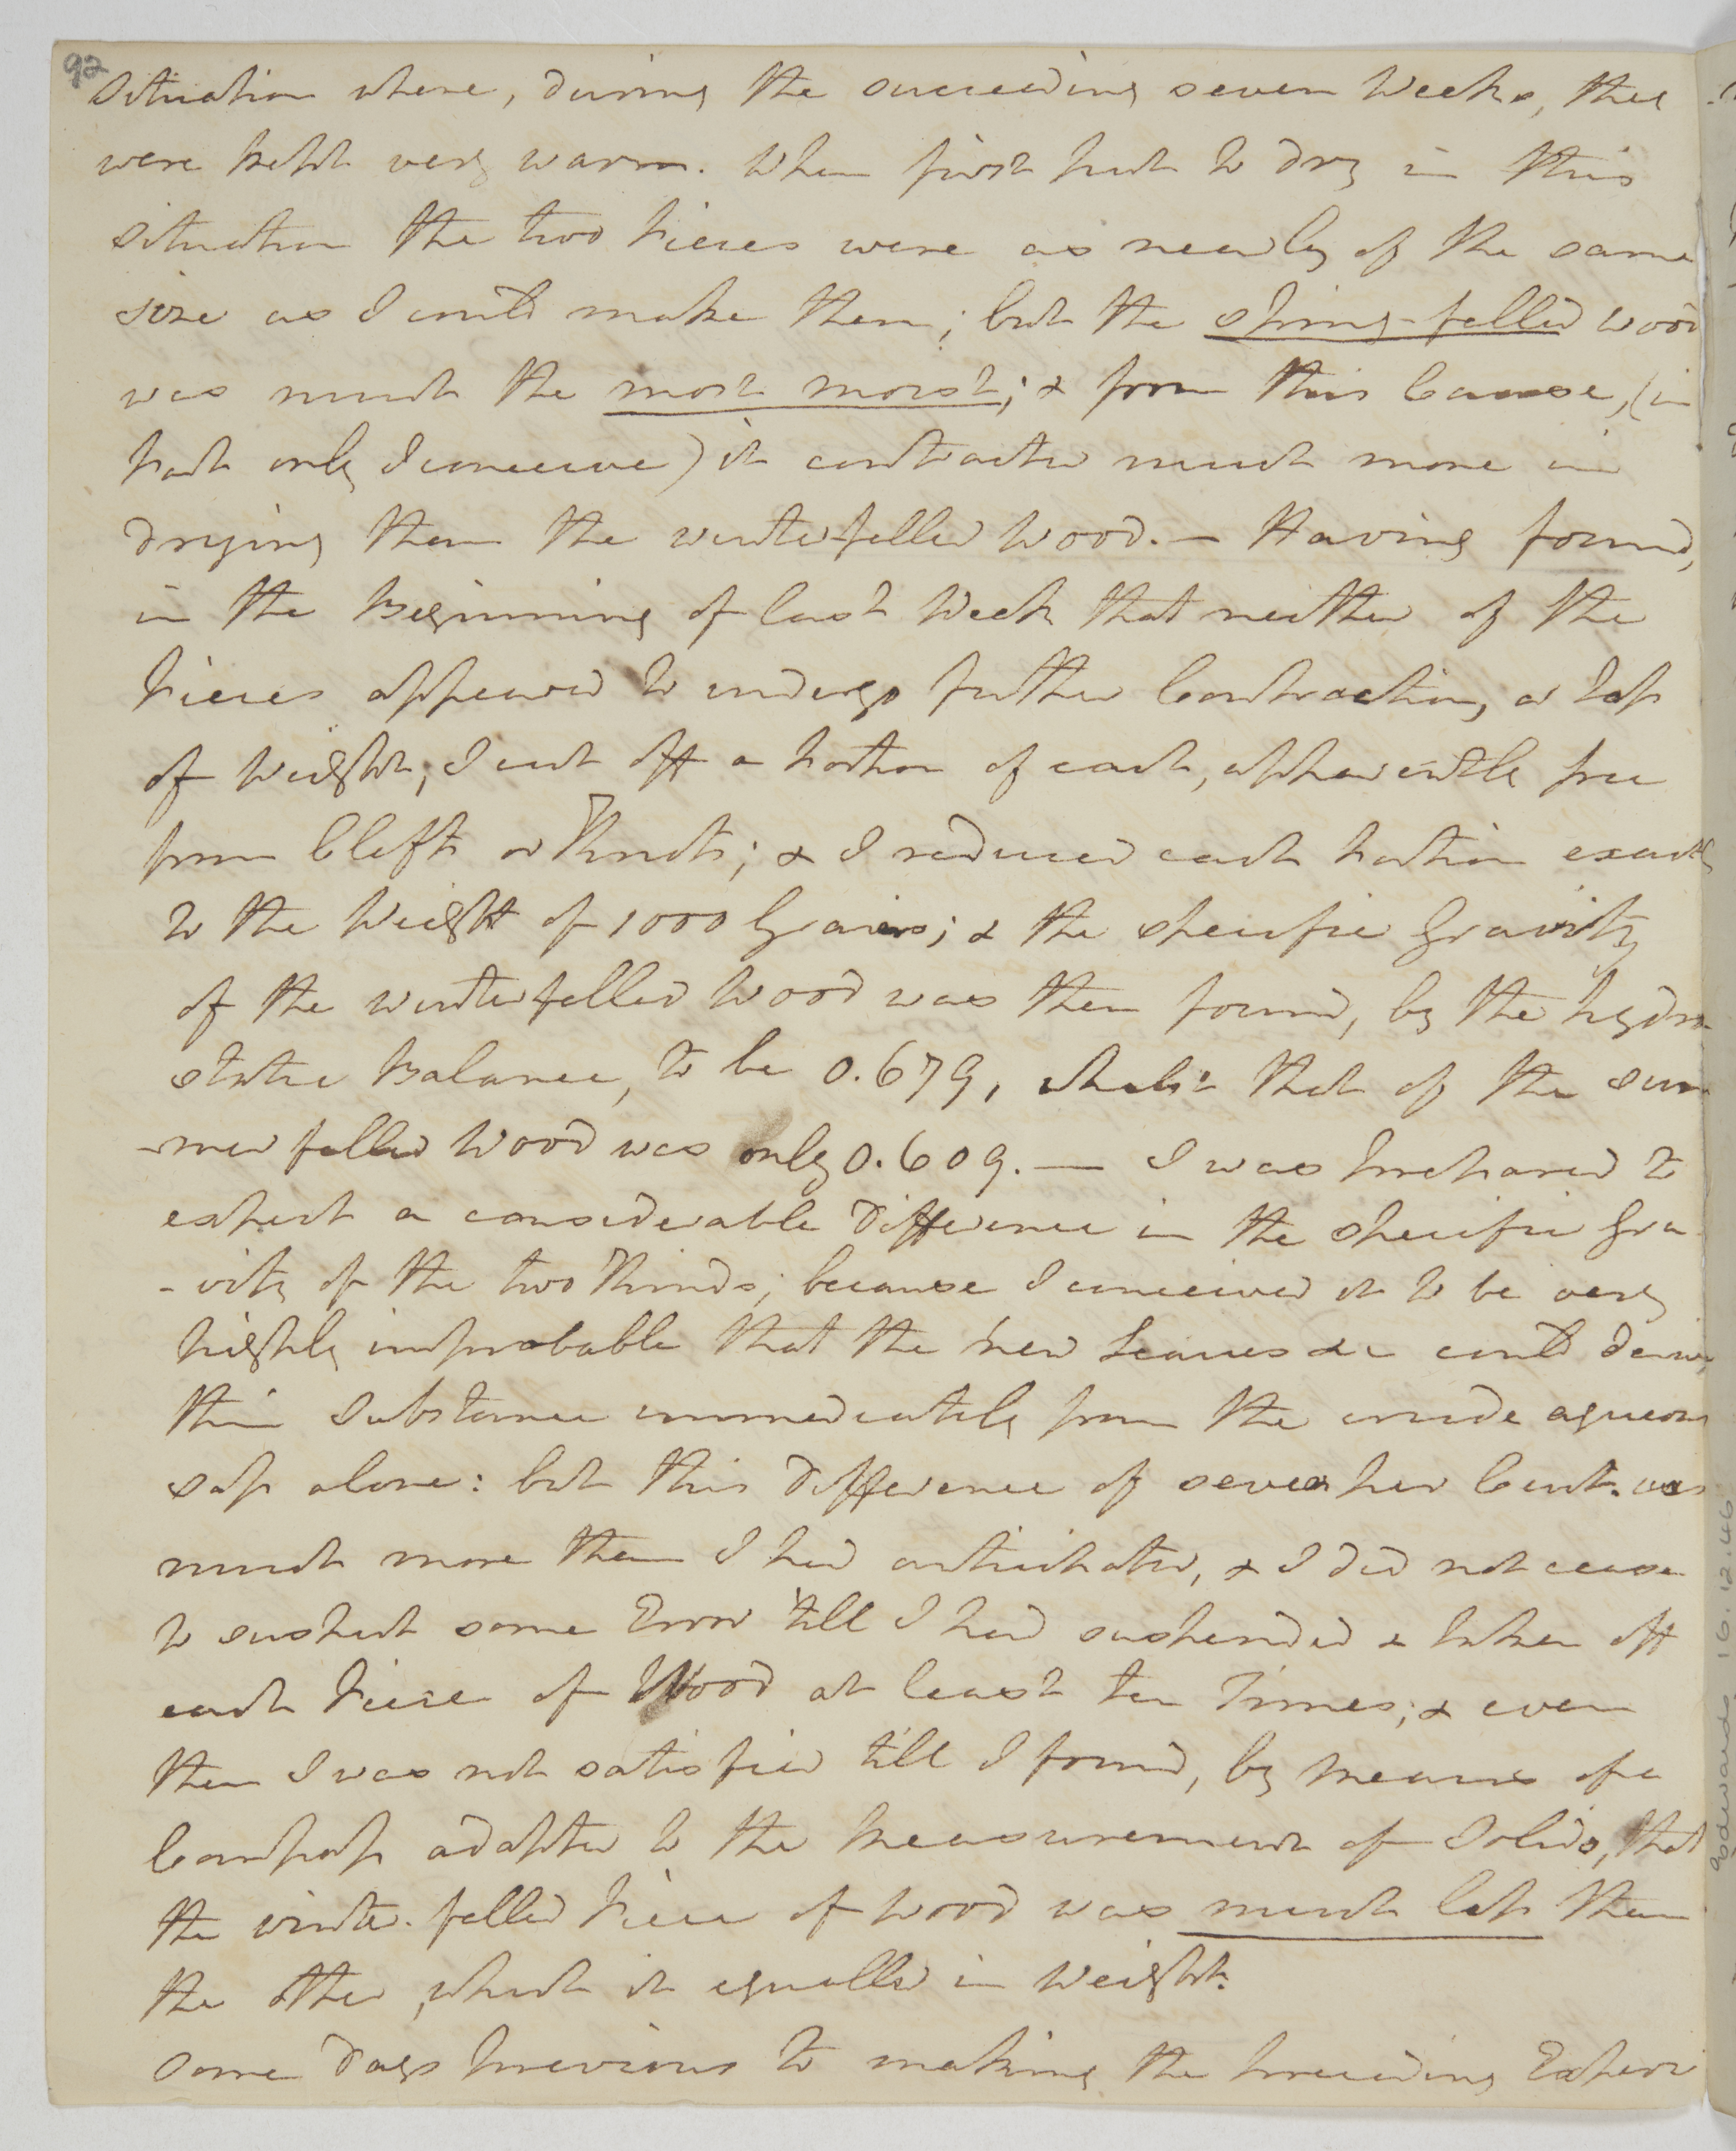 92
situation where, during the succeeding seven Weeks, they
were kept very warm. When first put to dry in this
situation the two Pieces were as nearly of the same
size as I could make them; but the spring-felled wood
was much the most moist; & from this Cause, (in
part only I conceive) it contracted much more in
drying than the winter-felled Wood. — Having found,
in the Beginning of last Week that neither of the
Pieces appeared to undergo further Contraction, or Loss
of Weight, I cut off a Portion of each, apparently free
from Clefts or Knots; & I reduced each Portion exactly
to the Weight of 1000 Grains; & the specific Gravity
of the winter felled Wood was then found, by the hydro
static Balance, to be 0.679, whilst that of the sum
-mer felled Wood was only 0.609. — I was prepared to
expect a considerable Difference in the specific Gra
-vity of the two Kinds; because I conceived it to be very
highly improbable that the new Leaves &c could derive
their Substance immediately from the crude aqueous
sap alone: but this Difference of seven per Cent. was
much more than I had anticipated, & I did not cease
to suspect some Error till I had suspended & taken off
each Piece of Wood at least ten Times; & even
then I was not satisfied till I found, by Means of a
Compass adapted to the Measurement of Solids, that
the winter-felled Piece of Wood was much less than
the other, which it equalled in Weight.
Some Days previous to making the preceding Experi
Edwards 16.12.46